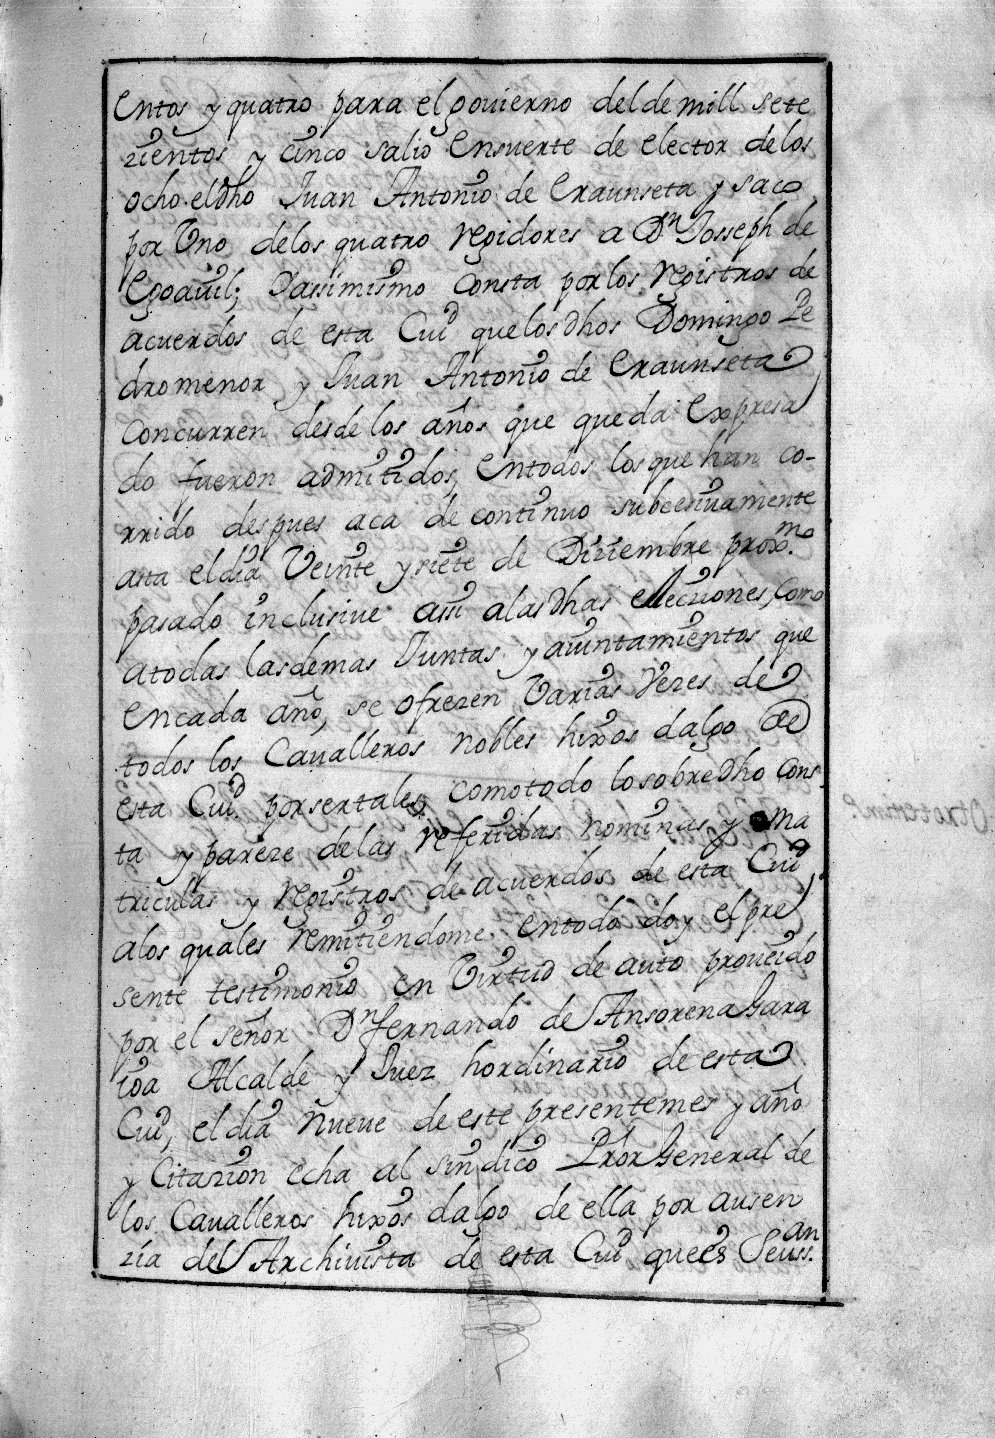 entos y quatro para el govierno del de mill sete
zientos y cinco salio en suerte de elector de los
ocho el dho Juan Antonio de Eraunseta y saco
por Uno de los quatro regidores a Dn Josseph de
Egoavil; Yassimismo consta por los registros de
acuerdos de esta Ciud que los dhos Domingo Pe
dro menor y Juan Antonio de Eraunseta
concurren desde los años que queda expresa
do fueron admitidos, en todos los que han co-
rrido despues aca de continuo subcesivamente
asta el dia Veinte y siete de Diziembre proxmo.
pasado inclusive assi a las dhas ellecziones, como
a todas las demas Juntas y aiuntamientos que
en cada año, se ofrezen Varias Vezes de
todos los Cavalleros nobles hixos dalgo de
esta Ciud. por ser tales, como todo lo sobre dho cons
ta y pareze de las referidas nominas y ma
triculas y registros de acuerdos de esta Ciud
a los quales remitiendome en todo doy el pre
sente testimonio en Virtud de auto proveido
por el señor Dn fernando de Ansorena Gara
ioa Alcalde y Juez hordinario de esta
Ciud, el dia nueve de este presente mes y año
y Citazion echa al sindico Pror General de
los Cavalleros hixos dalgo de ella por ausen
zia del Archivista de esta Ciud que es Sevass.an